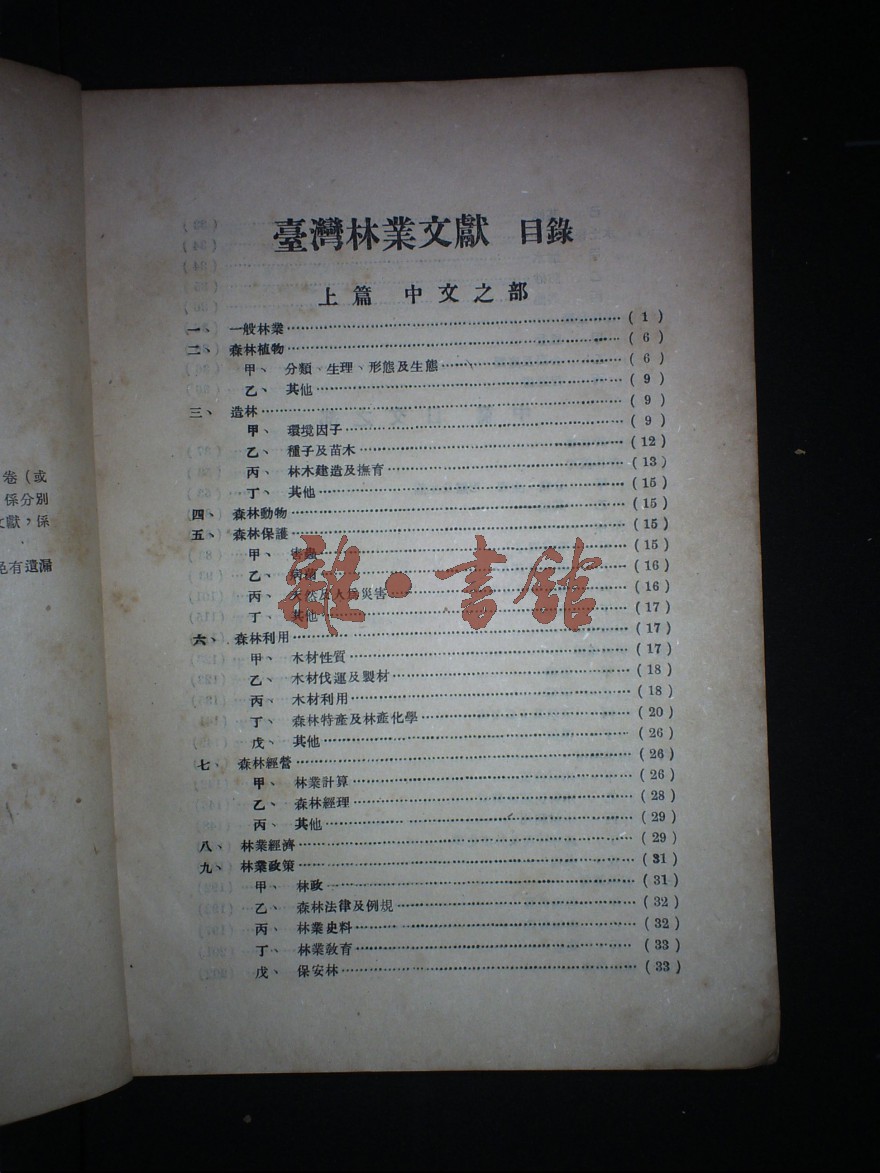 卷（或
係分別
文獻，係
有遺漏
臺灣林業文獻 目錄
上篇 中文之部
一、 一般林業………(1)
二、 森林植物………(6)
甲、 分類、生理、形態及生態………(6)
乙、 其他………(9)
三、 造林………(9)
甲、 環境因子………(9)
乙、 種子及苗木………(12)
丙、 林木建造及撫育………(13)
丁、 其他………(15)
四、 森林動物………(15)
五、 森林保護………(15)
甲、 害蟲………(15)
乙、 病菌………(16)
丙、 天然及人為災害………(16)
丁、 其他………(17)
六、 森林利用………(17)
甲、 木材性質………(17)
乙、 木材伐運及製材………(18)
丙、 木材利用………(18)
丁、 森林特產及林產化學………(20)
戊、 其他………(26)
七、 森林經營………(26)
甲、 林業計算………(26)
乙、 森林經理………(28)
丙、 其他………(29)
八、 林業經濟………(29)
九、 林業政策………(31)
甲、 林政………(31)
乙、 森林法律及例規………(32)
丙、 林業史料………(32)
丁、 林業教育………(33)
戊、 保安林………(33)
雜·書館